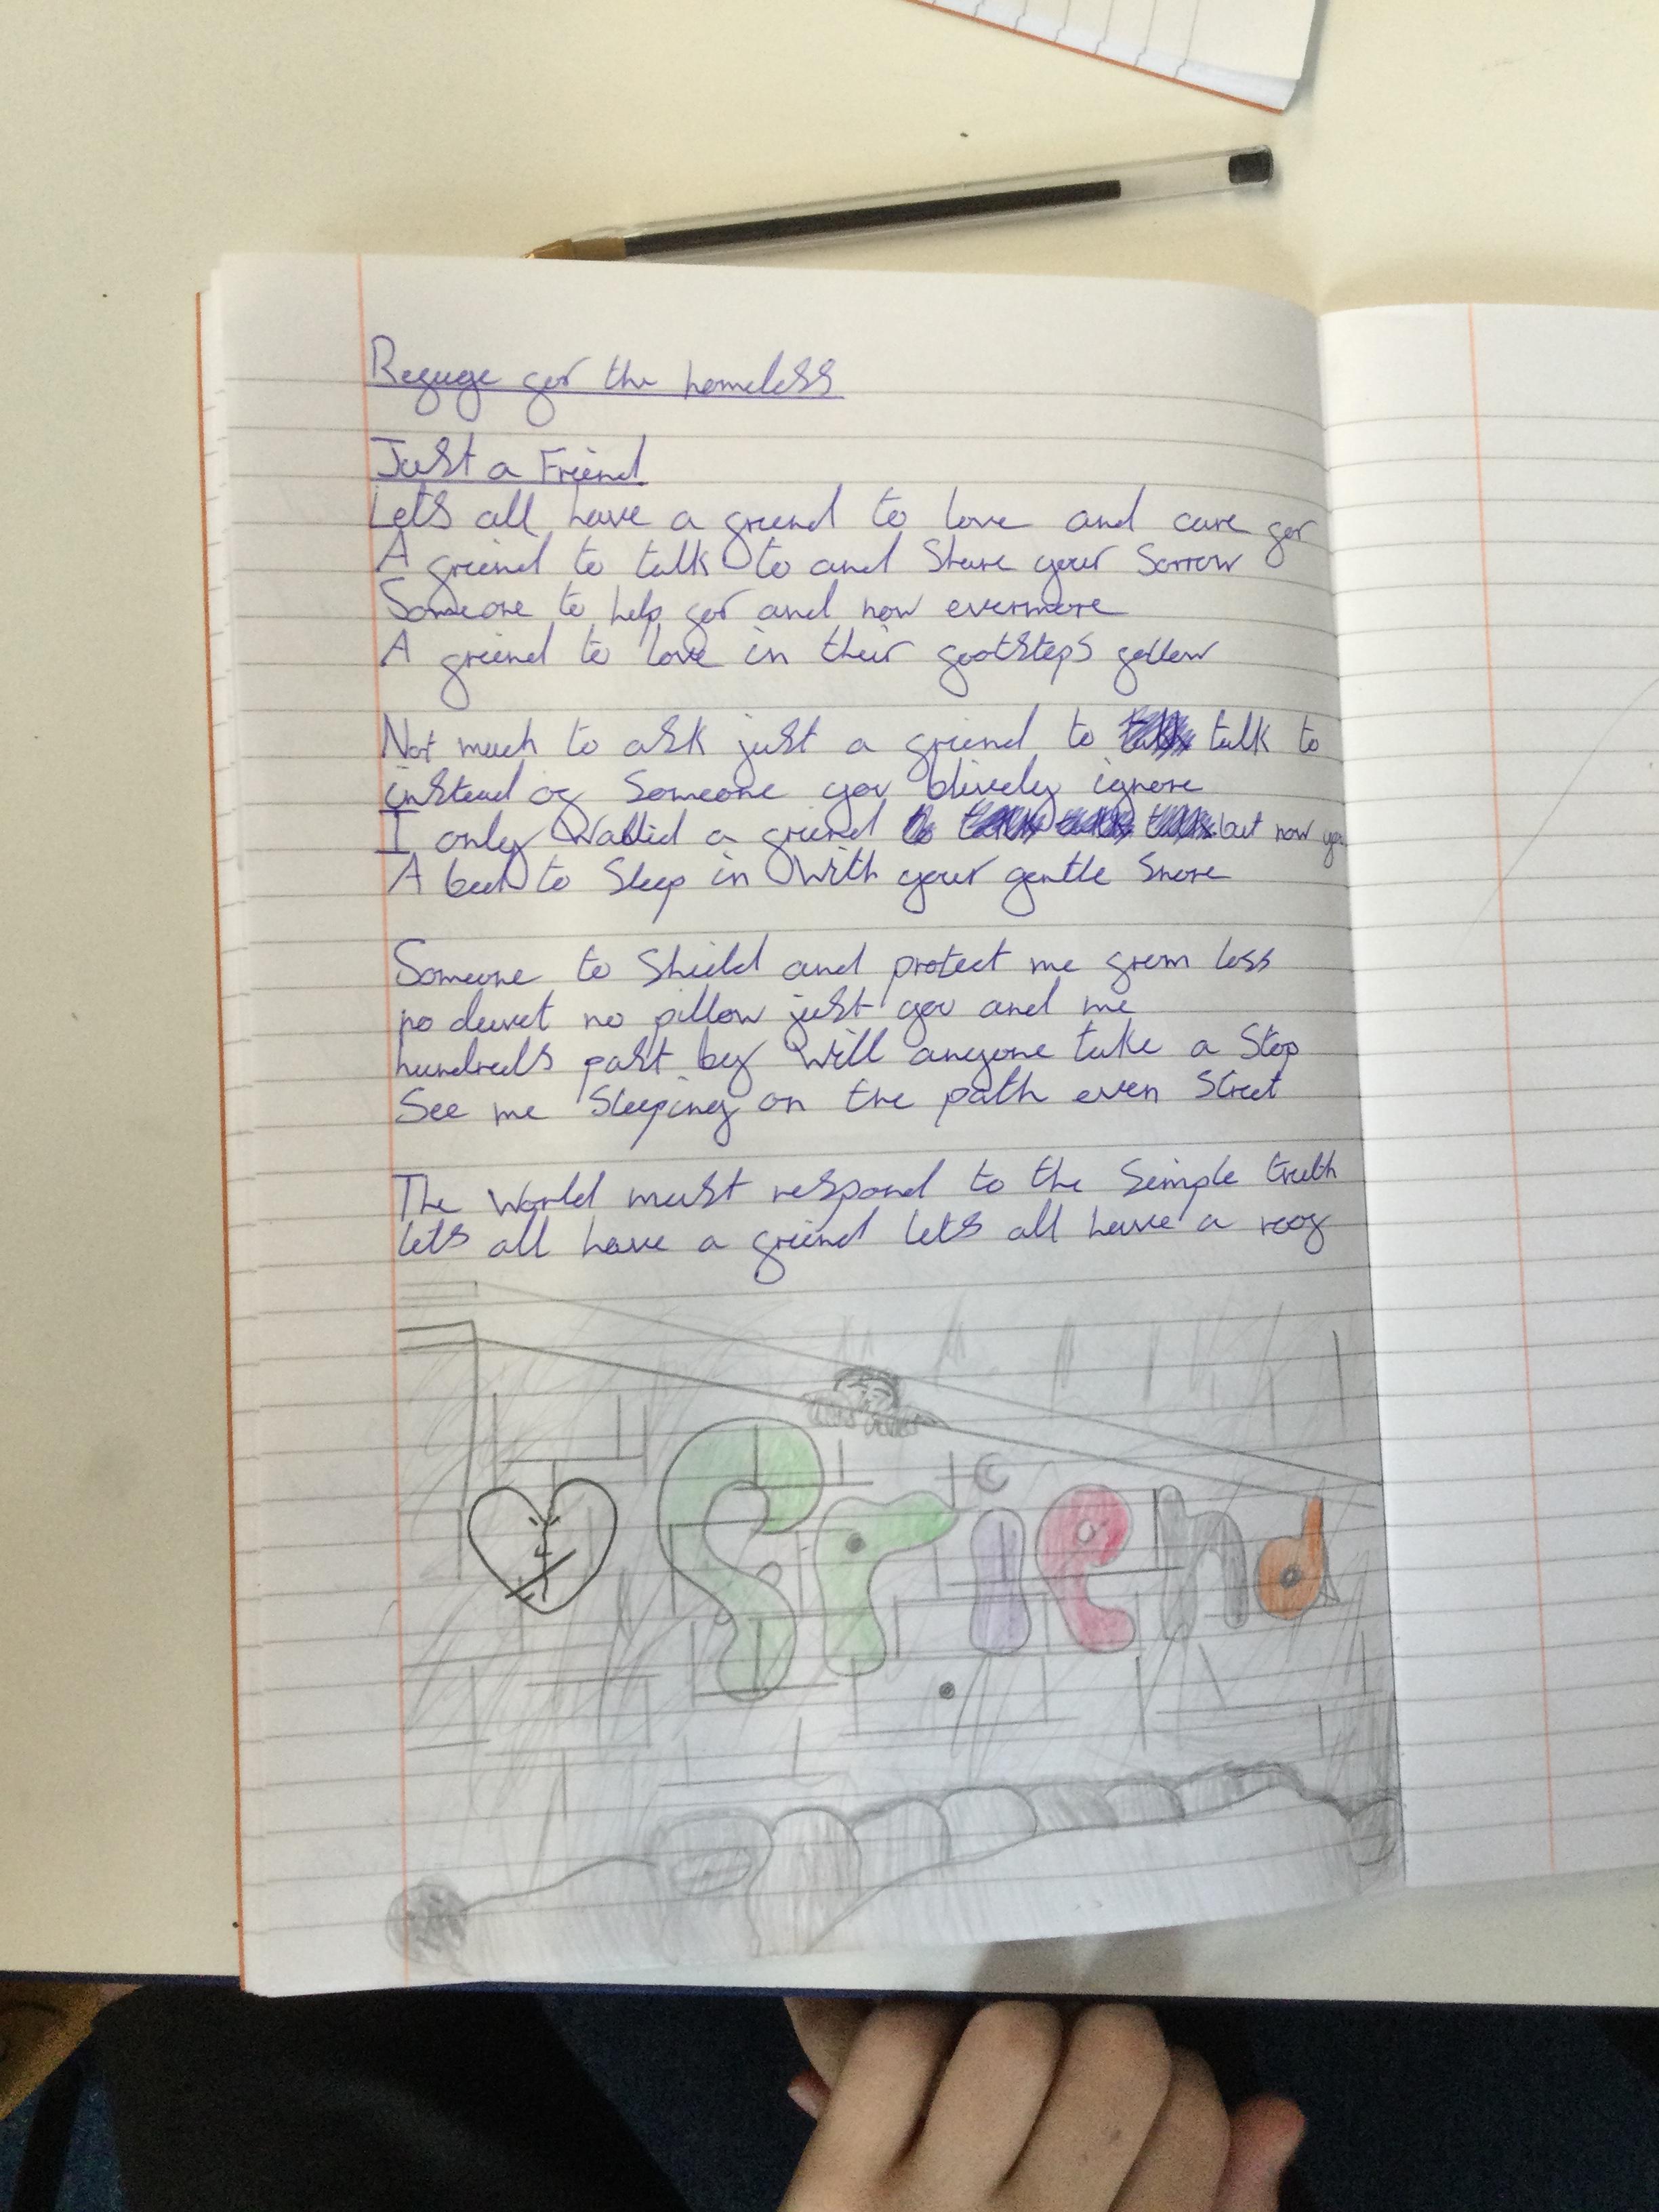 Refuge for the homeless
Just a Friend
Lets all have a friend to love and care for
A friend to talk to and Share your Sorrow
Someone to help for and now evermore
A friend to love in their footsteps follow
Not much to ask just a friend to talk to
instead of Someone you blively ignore
I only Wanted a friend but now you
A bed to Sleep in With your gentle Snore
Someone to Shield and protect me from loss
no duvet no pillow just you and me
hundreds past by Will anyone take a Stop
See me Sleeping on the path even Street
The World must respond to the Simple truth
lets all have a friend lets all have a roof
friend